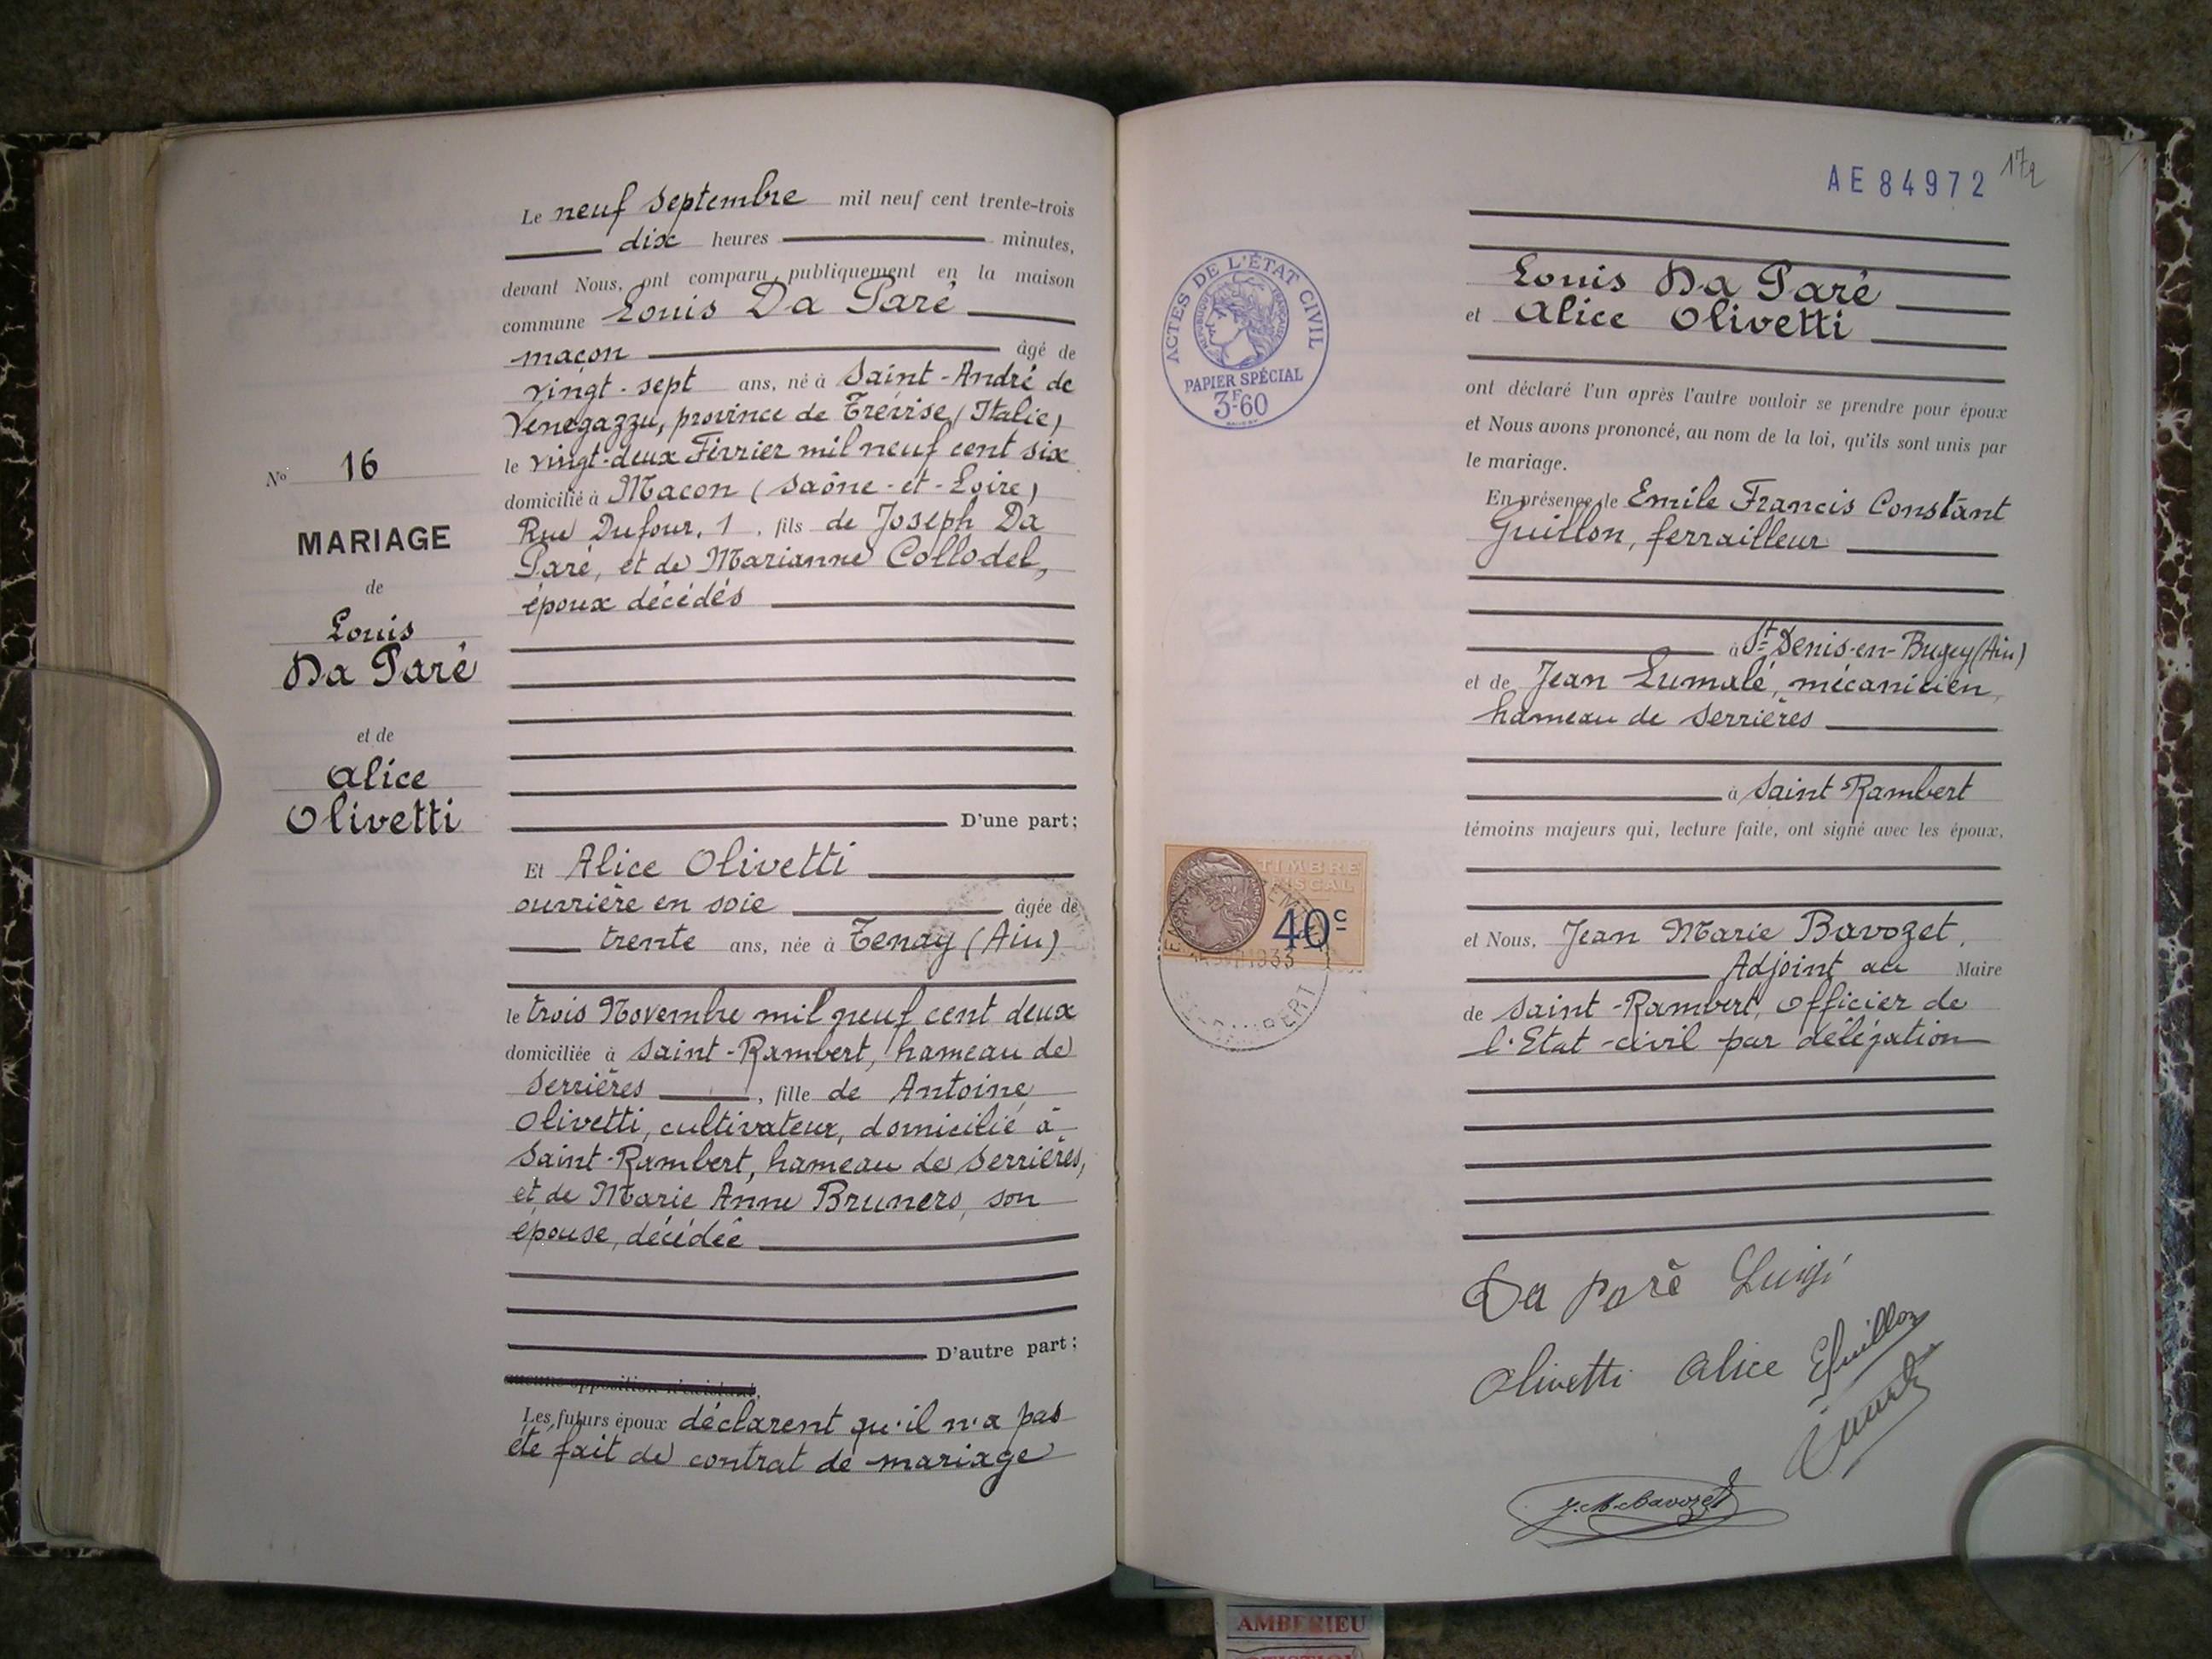 Le neuf Septembre mil neuf cent trente-trois
dix heures minutes,
devant Nous, ont comparu publiquement en la maison
commune Louis Da Paré
maçon âgé de
vingt-sept ans, né à Saint-André de
Venegazzu, province de Trévise (Italie)
le vingt-deux Février mil neuf cent six
domicilié à Macon (Saône-et-Loire)
Rue Dufour, 1, fils de Joseph Da
Paré, et de Marianne Collodel,
époux décédés
No 16
MARIAGE
de
Louis
Da Paré
et de
Alice
Olivetti
D'une part;
Et Alice Olivetti
ouvrière en soie âgée de
trente ans, née à Tenay (Ain)
le trois Novembre mil neuf cent deux
domiciliée à Saint-Rambert, hameau de
Serrières, fille de Antoine
Olivetti, cultivateur, domicilié à
Saint-Rambert, hameau de Serrières,
et de Marie Anne Brunero, son
épouse, décédée
D'autre part;
aucune opposition n'existant,
Les futurs époux déclarent qu'il n'a pas
été fait de contrat de mariage
AE84972
172
ACTES DE L'ÉTAT CIVIL
RÉPUBLIQUE FRANÇAISE
PAPIER SPÉCIAL
3F60
Louis Da Paré
et Alice Olivetti
ont déclaré l'un après l'autre vouloir se prendre pour époux
et Nous avons prononcé, au nom de la loi, qu'ils sont unis par
le mariage.
En présence de Emile Francis Constant
Guillon, ferrailleur
à St Denis-en-Bugey (Ain)
et de Jean Lumalé, mécanicien,
hameau de Serrières
à Saint-Rambert
témoins majeurs qui, lecture faite, ont signé avec les époux,
TIMBRE
FISCAL
40c
1933
et Nous, Jean Marie Bavozet,
Adjoint au Maire
de Saint-Rambert, Officier de
l'Etat-civil par délégation
Da Parè Luigi
Olivetti Alice EGuillon
J.M.Bavozet
AMBERIEU